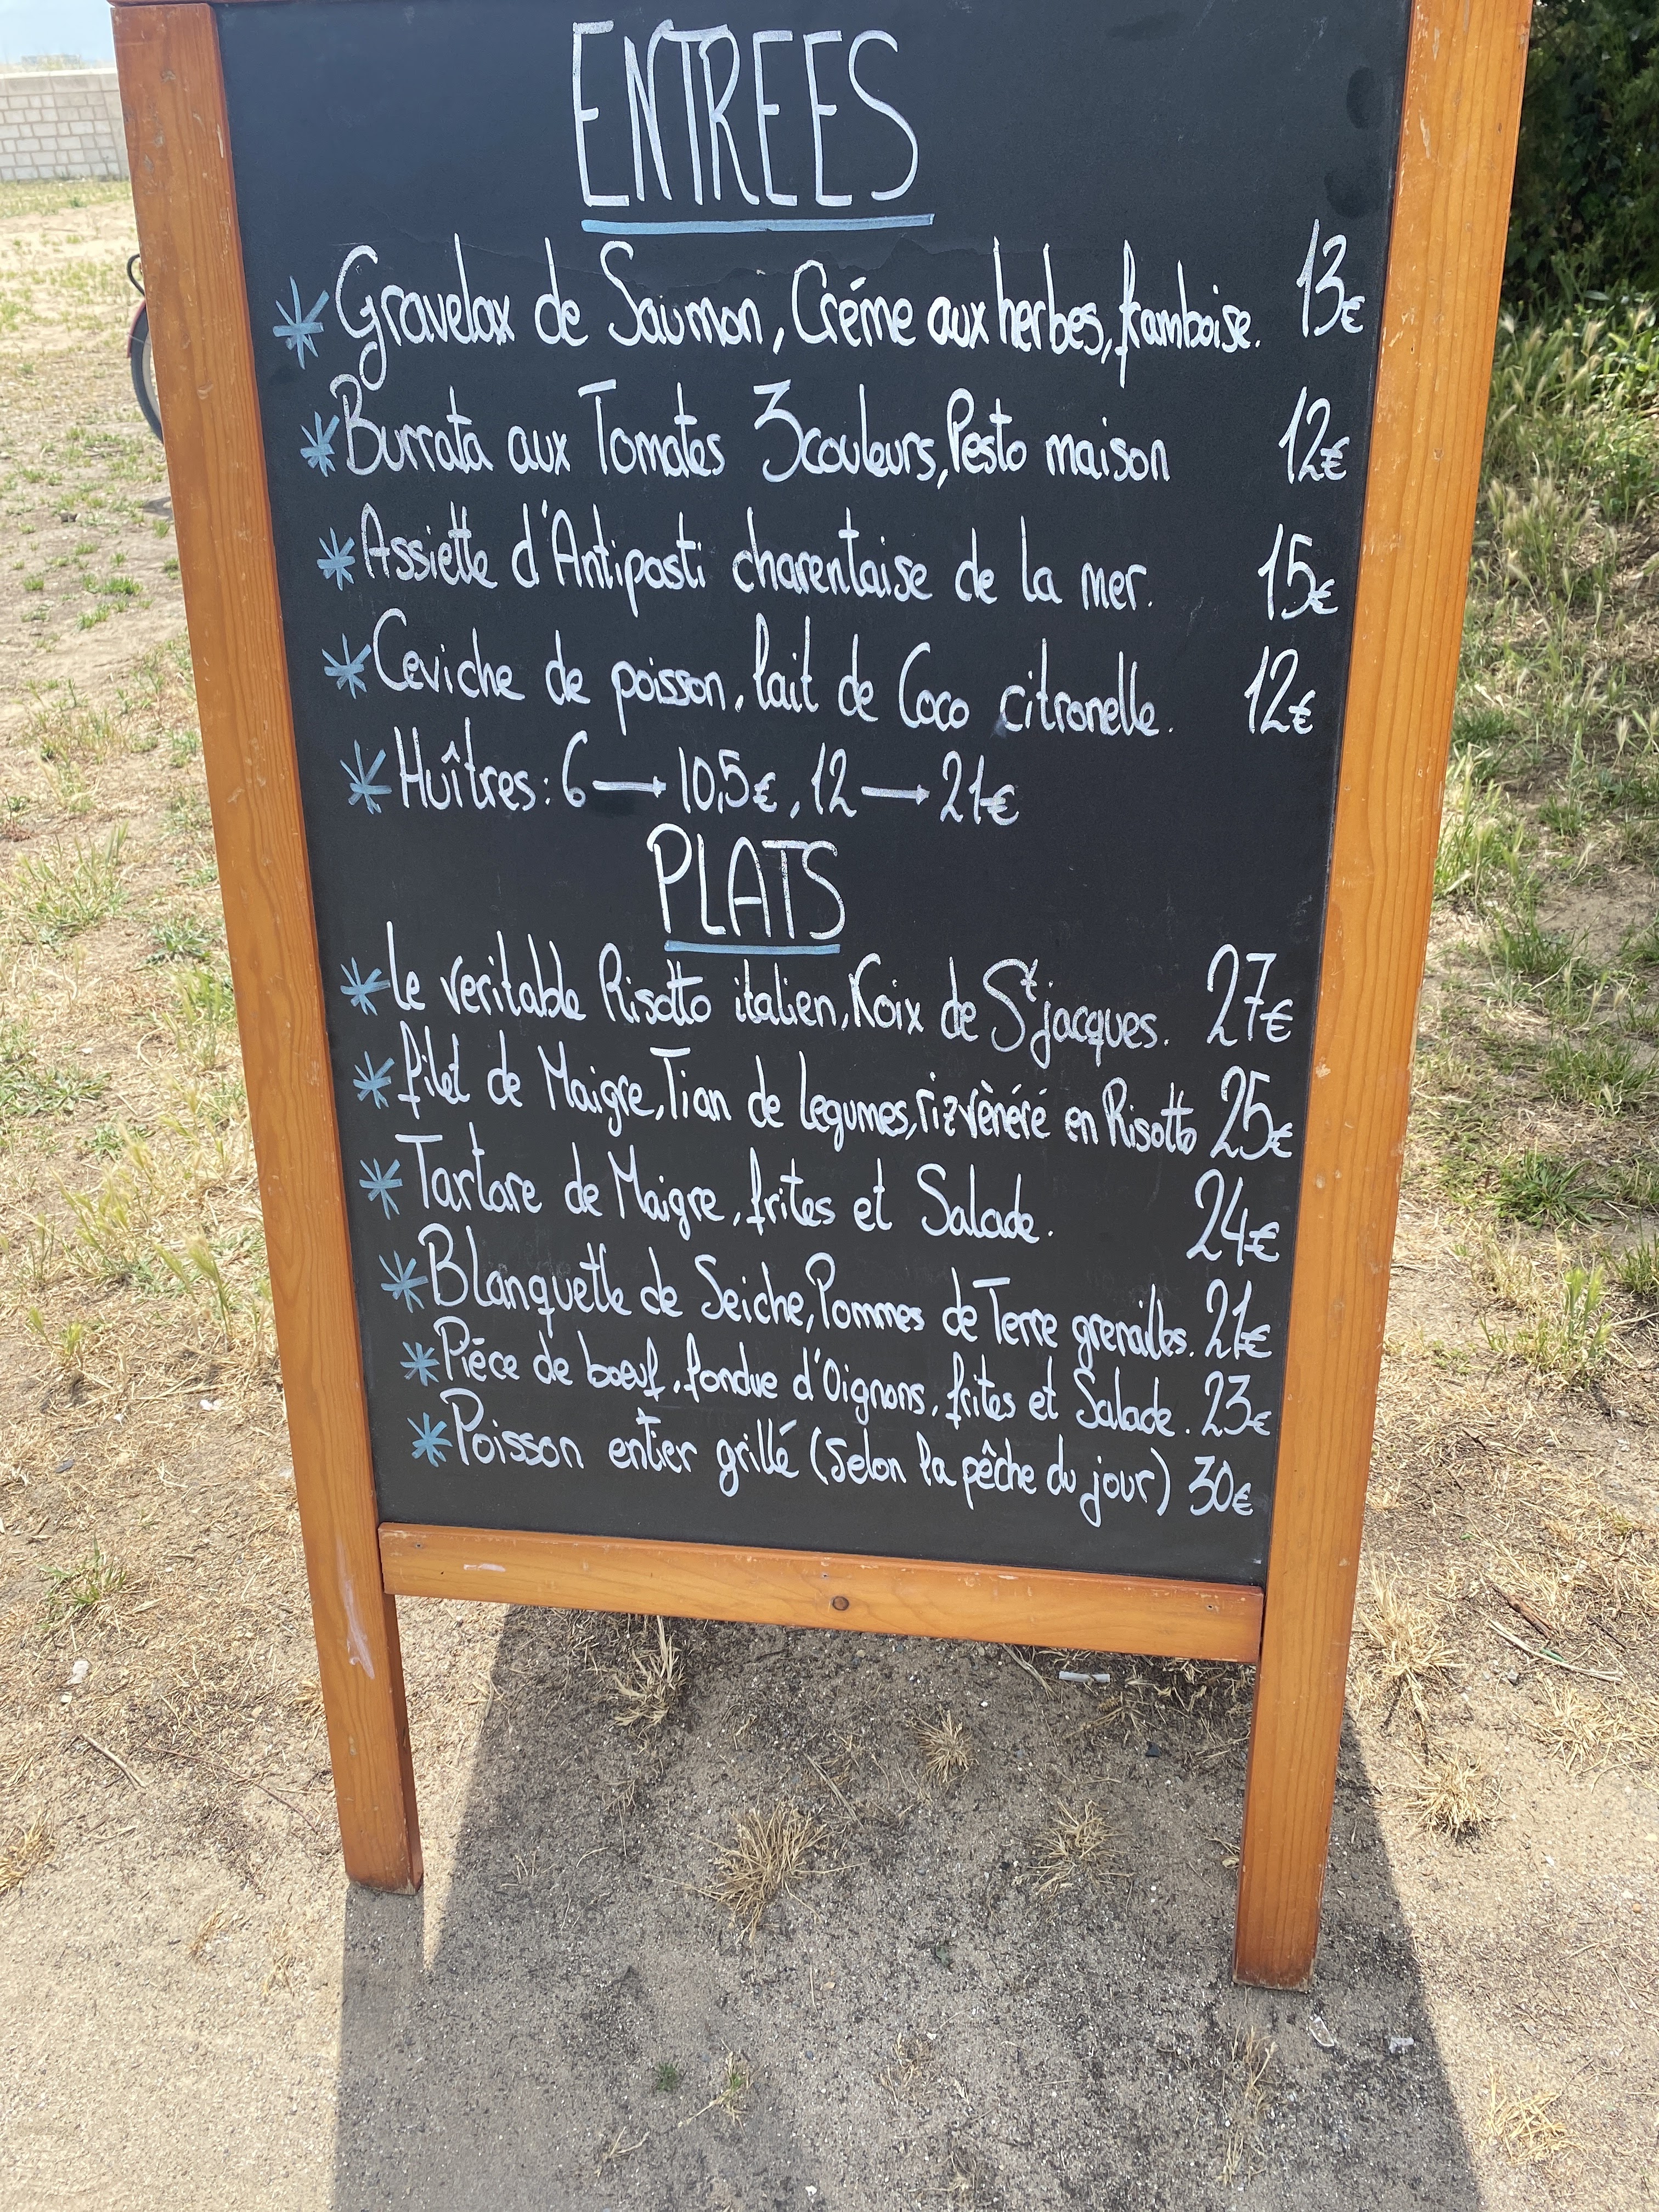 ENTREES
* Gravelax de Saumon, Créme aux herbes, framboise. 13€
* Burrata aux Tomates 3 couleurs, Pesto maison 12€
* Assiette d'Antipasti charentaise de la mer. 15€
* Ceviche de poisson, lait de Coco citronelle. 12€
* Huîtres: 6 → 10,5€, 12 → 21€
PLATS
* Le veritable Risotto italien, Noix de St jacques. 27€
* filet de Maigre, Tian de legumes, riz vènéré en Risotto 25€
* Tartare de Maigre, frites et Salade. 24€
* Blanquette de Seiche, Pommes de Terre grenailles. 21€
* Piéce de boeuf, fondue d'Oignons, frites et Salade. 23€
* Poisson entier grillé (Selon la pêche du jour) 30€